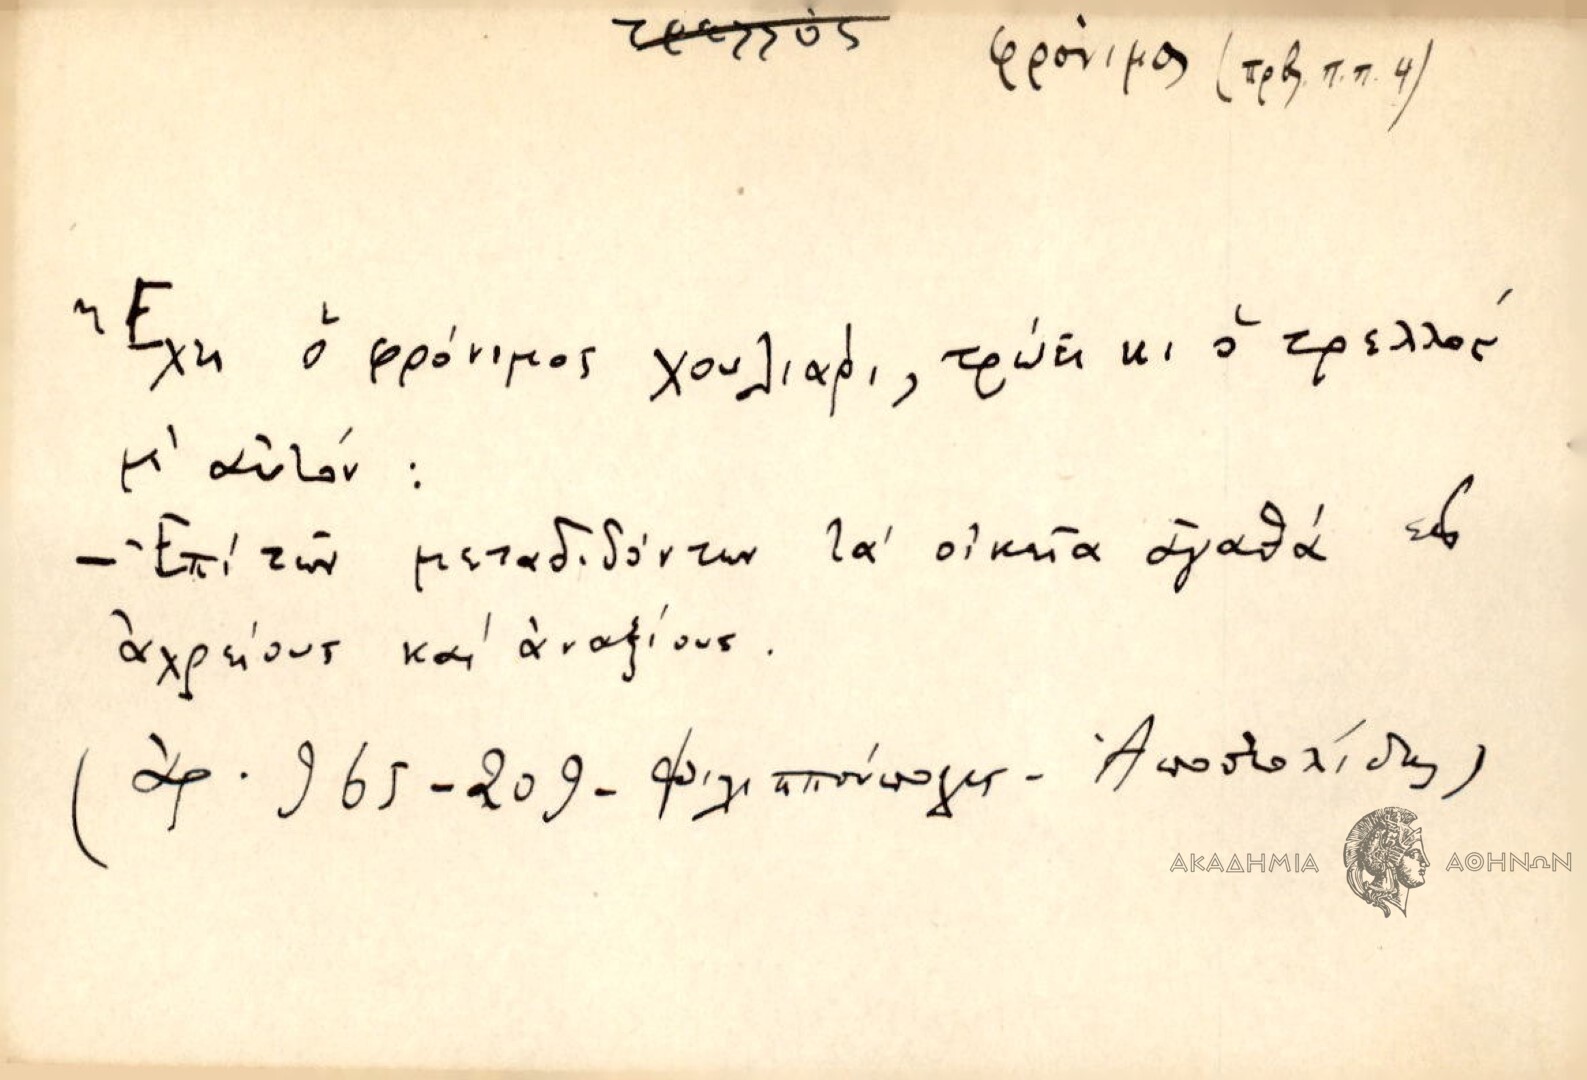 τρελλὸς φρόνιμος (πρβ. π.π. 4)
Ἔχει ὁ φρόνιμος χουλιάρι, τρώει κι ὁ τρελλός
μ' αὐτόν :
— Ἐπί τῶν μεταδιδόντων τά οἰκεῖα ἀγαθά εἰς
ἀχρείους καί ἀναξίους.
(ἀρ. 965-209- Φιλιππούπολις - Ἀποστολίδης)
ΑΚΑΔΗΜΙΑ ΑΘΗΝΩΝ